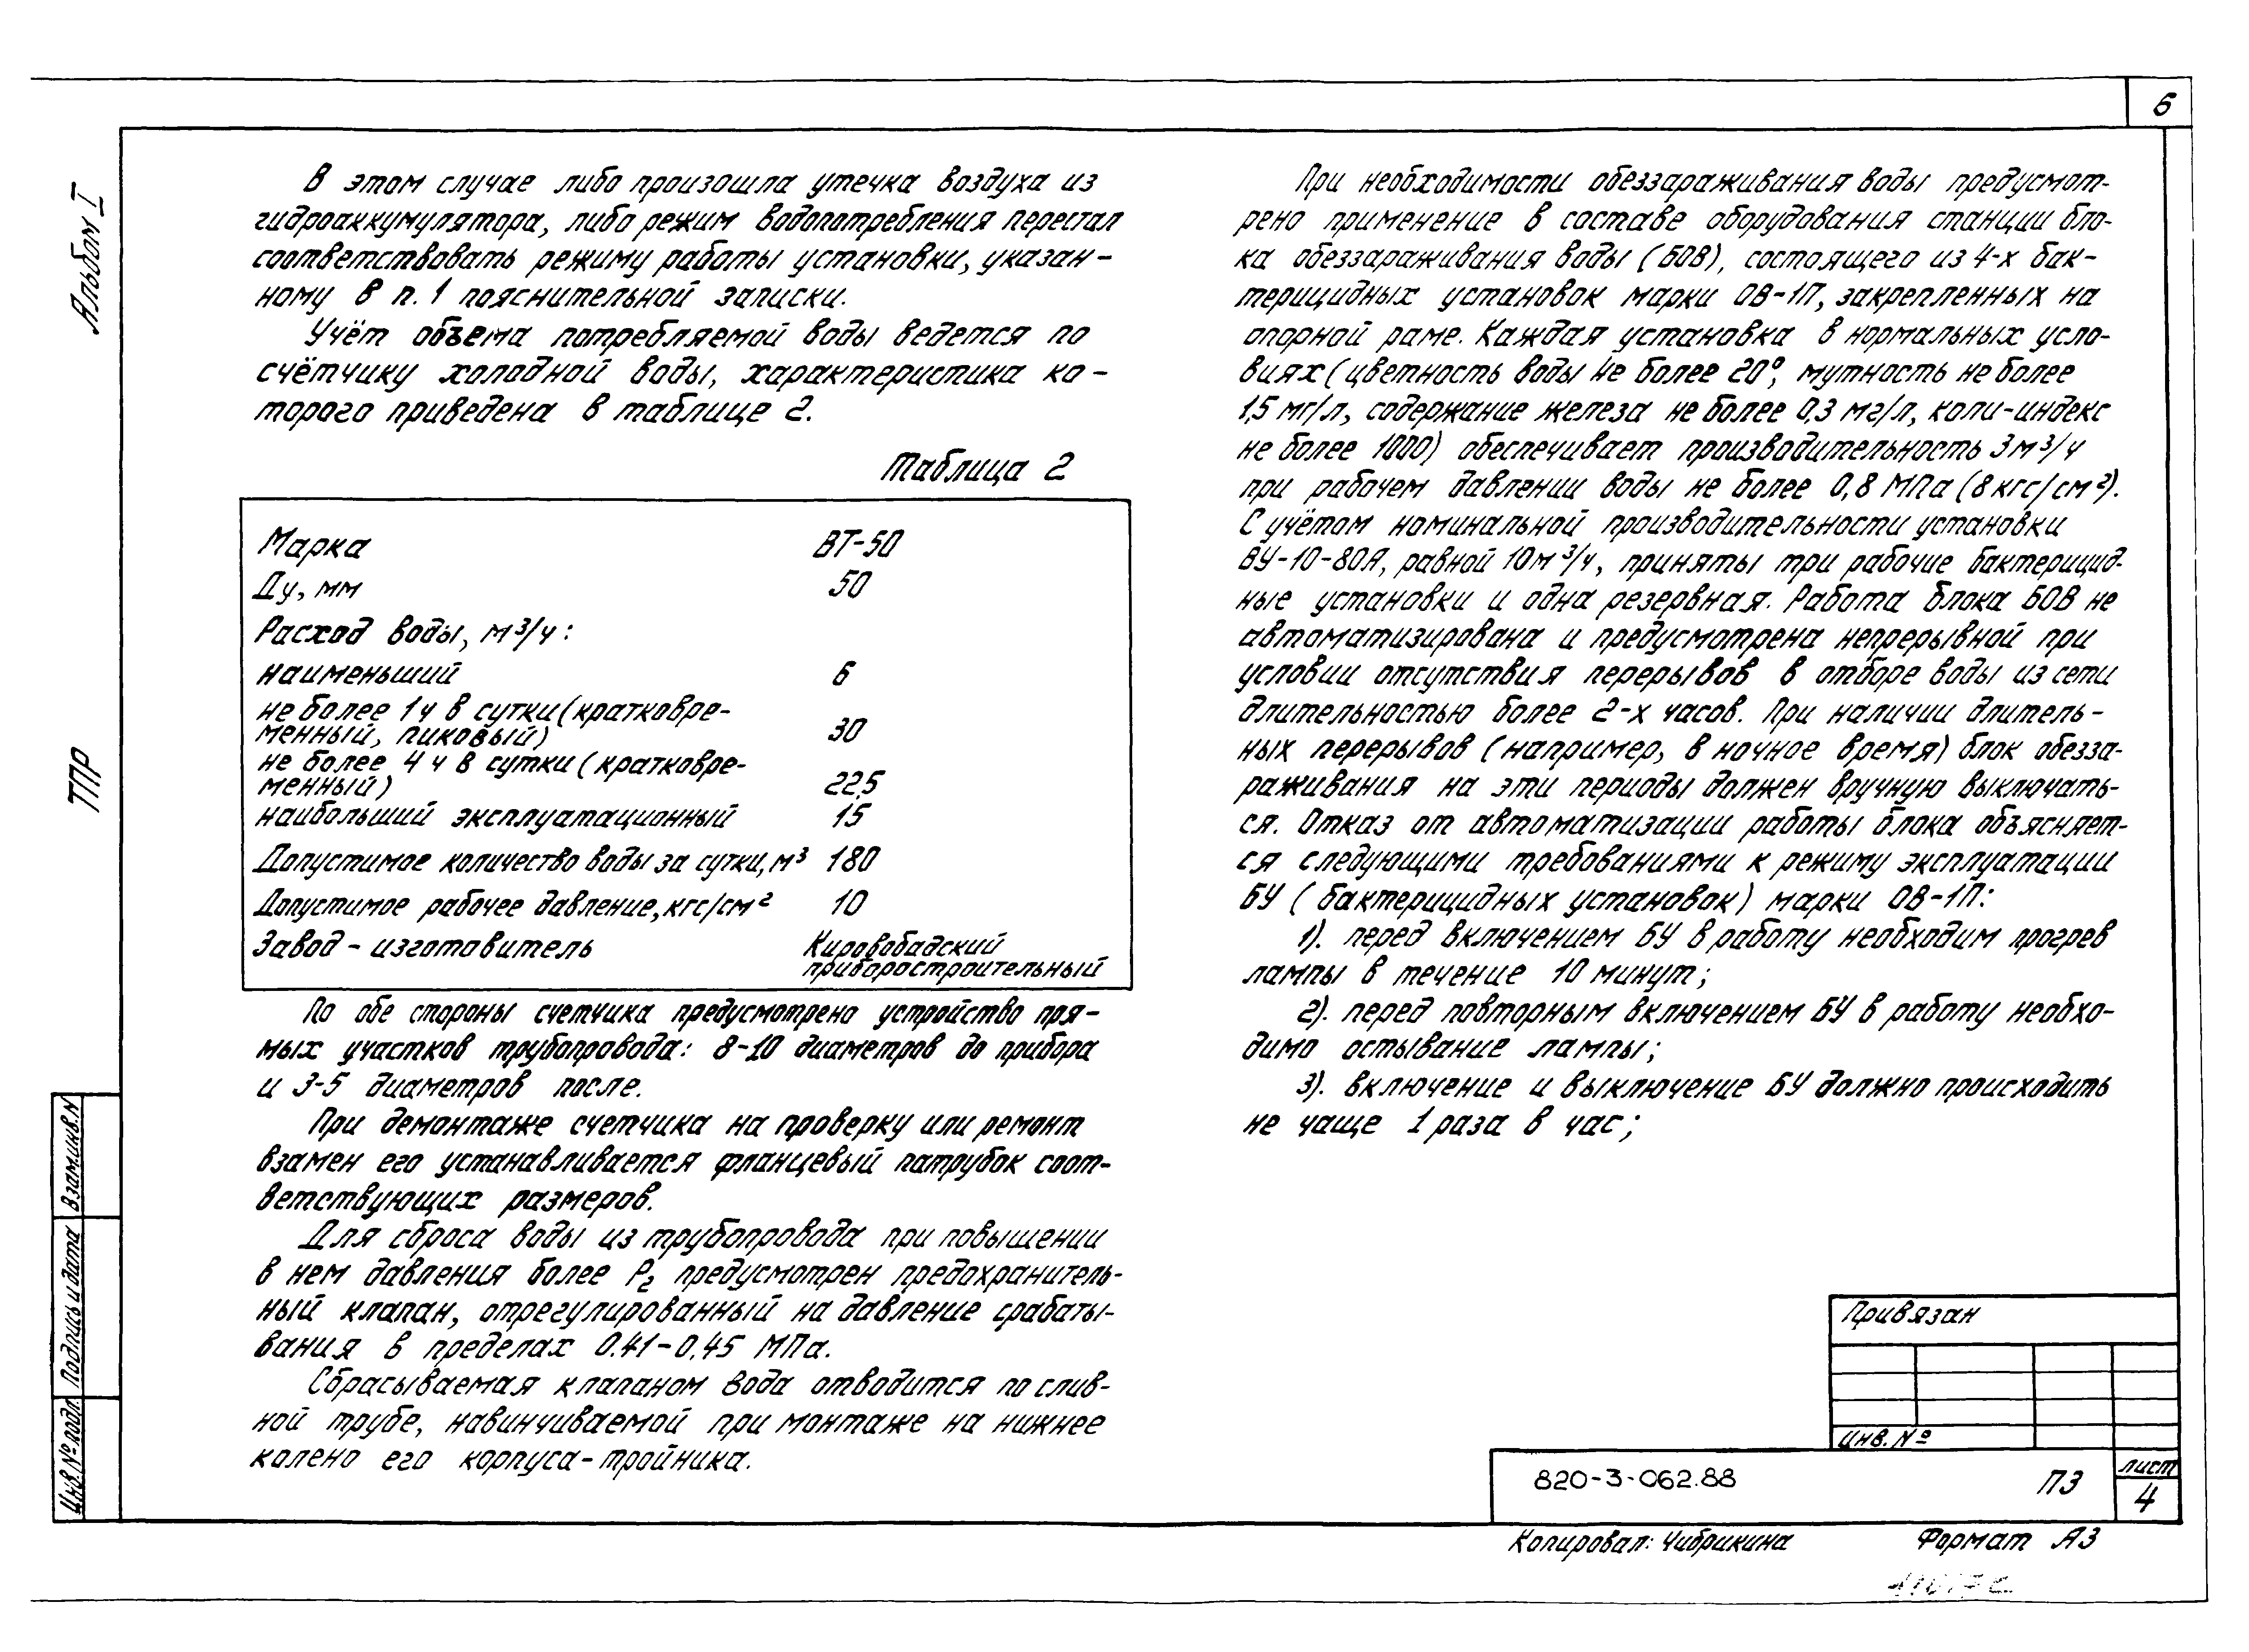 6
Альбом I
ТПР
В этом случае либо произошла утечка воздуха из
гидроаккумулятора, либо режим водопотребления перестал
соответствовать режиму работы установки, указан-
ному в п. 1 пояснительной записки.
Учёт объема потребляемой воды ведется по
счётчику холодной воды, характеристика ко-
торого приведена в таблице 2.
Таблица 2
Марка ВТ-50
Ду, мм 50
Расход воды, м³/ч:
наименьший 6
не более 1ч в сутки (кратковре-
менный, пиковый) 30
не более 4 ч в сутки (кратковре-
менный) 22,5
наибольший эксплуатационный 15
Допустимое количество воды за сутки, м³ 180
Допустимое рабочее давление, кгс/см² 10
Завод - изготовитель Кировобадский
приборостроительный
По обе стороны счетчика предусмотрено устройство пря-
мых участков трубопровода: 8-10 диаметров до прибора
и 3-5 диаметров после.
При демонтаже счетчика на проверку или ремонт
взамен его устанавливается фланцевый патрубок соот-
ветствующих размеров.
Для сброса воды из трубопровода при повышении
в нем давления более Р₂ предусмотрен предохранитель-
ный клапан, отрегулированный на давление срабаты-
вания в пределах 0.41-0,45 МПа.
Сбрасываемая клапаном вода отводится по слив-
ной трубе, навинчиваемой при монтаже на нижнее
колено его корпуса-тройника.
При необходимости обеззараживания воды предусмот-
рено применение в составе оборудования станции бло-
ка обеззараживания воды (БОВ), состоящего из 4-х бак-
терицидных установок марки ОВ-1П, закрепленных на
опорной раме. Каждая установка в нормальных усло-
виях (цветность воды не более 20°, мутность не более
1,5 мг/л, содержание железа не более 0,3 мг/л, коли-индекс
не более 1000) обеспечивает производительность 3м³/ч
при рабочем давлении воды не более 0,8 МПа (8 кгс/см²).
С учётом номинальной производительности установки
ВУ-10-80А, равной 10м³/ч, приняты три рабочие бактерицид-
ные установки и одна резервная. Работа блока БОВ не
автоматизирована и предусмотрена непрерывной при
условии отсутствия перерывов в отборе воды из сети
длительностью более 2-х часов. При наличии длитель-
ных перерывов (например, в ночное время) блок обезза-
раживания на эти периоды должен вручную выключать-
ся. Отказ от автоматизации работы блока объясняет-
ся следующими требованиями к режиму эксплуатации
БУ (бактерицидных установок) марки ОВ-1П:
1). перед включением БУ в работу необходим прогрев
лампы в течение 10 минут;
2). перед повторным включением БУ в работу необхо-
димо остывание лампы;
3). включение и выключение БУ должно происходить
не чаще 1 раза в час;
Взам.инв.N
Подпись и дата
Инв.№ подл.
Привязан
Инв. №
820-3-062.88 ПЗ
лист
4
Копировал: Чибрикина Формат А3